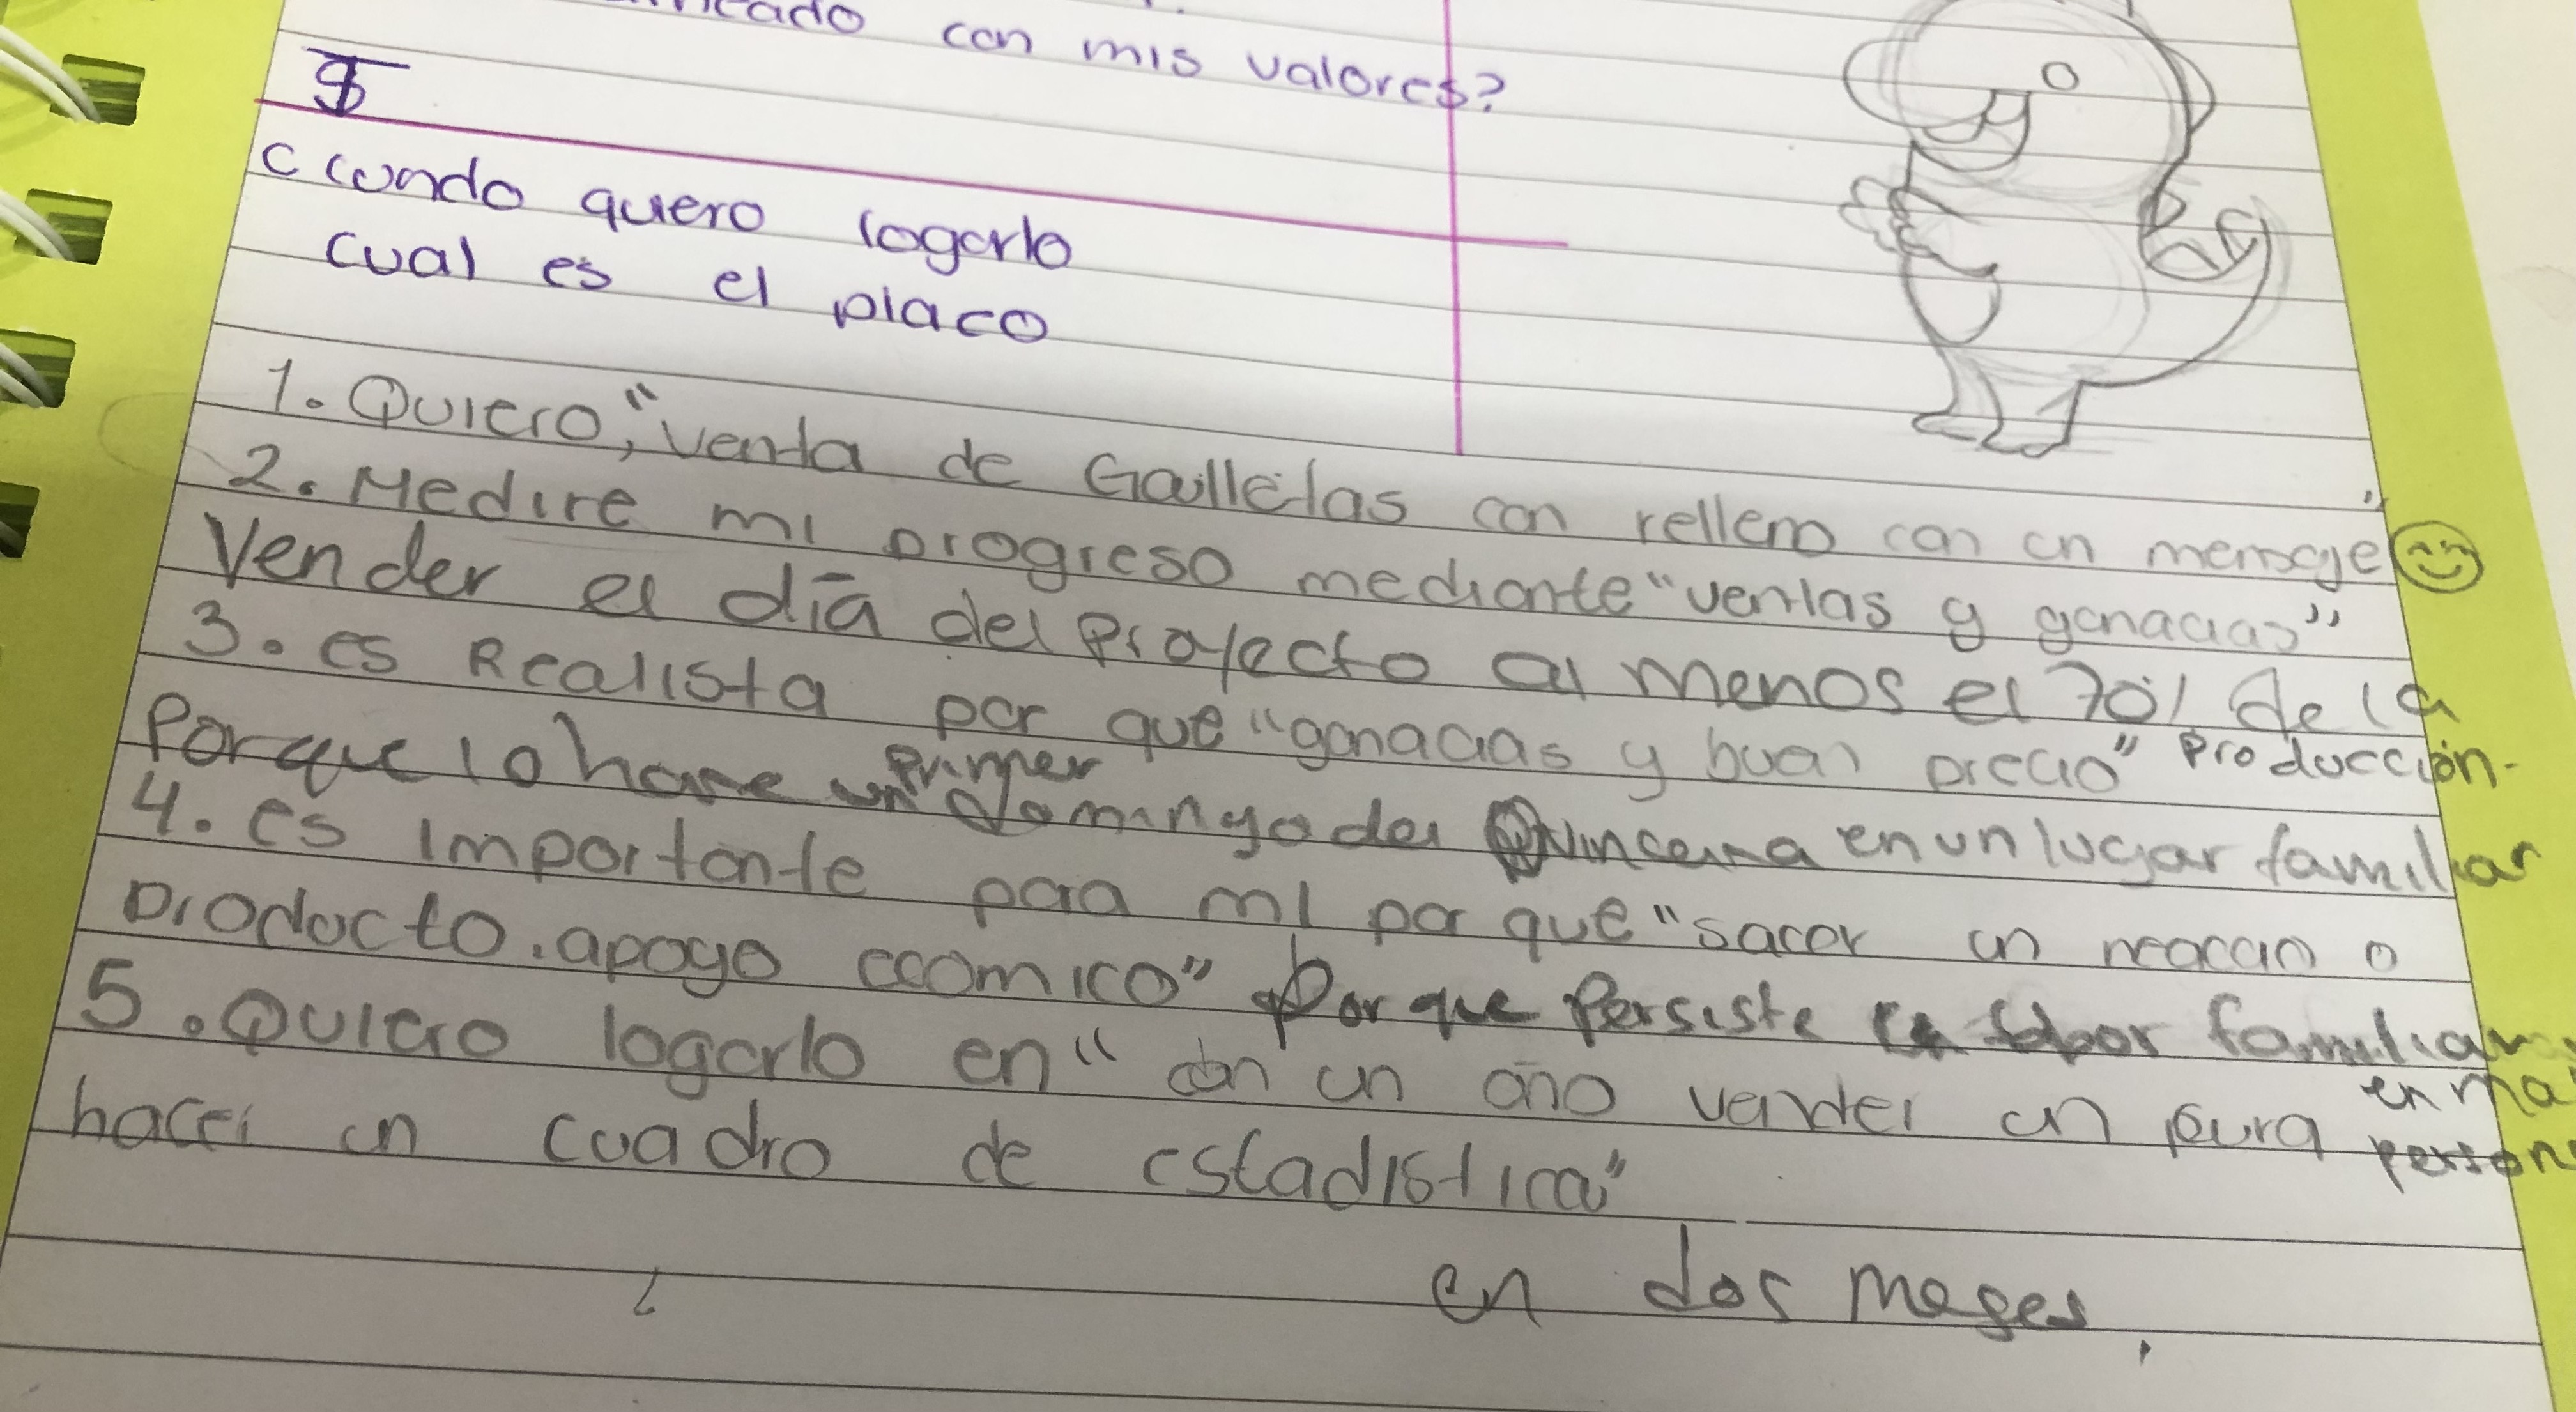 con mis valores?
$
C cuando quero logarlo
cual es el placo
1. Quiero, "venta de Galletas con relleno con un mensaje"
2. Medire mi progreso mediante "ventas y ganacias"
Vender el día del Proyecto al menos el 70% de la
Producción.
3. es Realista por que "ganacias y buen precio"
Porque lo hare un Primer domingo de Quincena en un lugar familiar
4. es importante para mi por que "sacar un o
producto. apoyo ecomico" Porque Persiste familiar
5. Quiero logarlo en " un año vender un pura
en
person
hacer un cuadro de estadistica"
en dos meses,